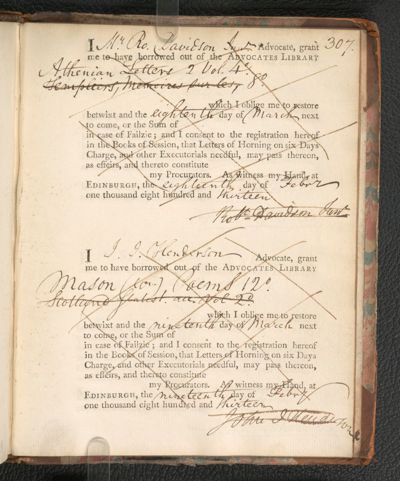 307.
I Mr Ro. Davidson Junr Advocate, grant
me to have borrowed out of the ADVOCATES LIBRARY
Athenian Letters 2 Vol. 4o.
Templiers, Memoires sur les, 8o.
which I oblige me to restore
betwixt and the eighteenth day of March, next
to come, or the Sum of
in case of Failzie; and I consent to the registration hereof
in the Books of Session, that Letters of Horning on six Days
Charge, and other Executorials needful, may pass thereon,
as effeirs, and thereto constitute
my Procurators. As witness my Hand, at
EDINBURGH, the eighteenth day of Febry
one thousand eight hundred and thirteen
Robt. Davidson Junr
I J. J. Henderson Advocate, grant
me to have borrowed out of the ADVOCATES LIBRARY
Mason Poems 12o.
Scotland Vol 2d.
which I oblige me to restore
betwixt and the nineteenth day of March next
to come, or the Sum of
in case of Failzie; and I consent to the registration hereof
in the Books of Session, that Letters of Horning on six Days
Charge, and other Executorials needful, may pass thereon,
as effeirs, and thereto constitute
my Procurators. As witness my Hand, at
EDINBURGH, the nineteenth day of Febry
one thousand eight hundred and thirteen
John J Henderson